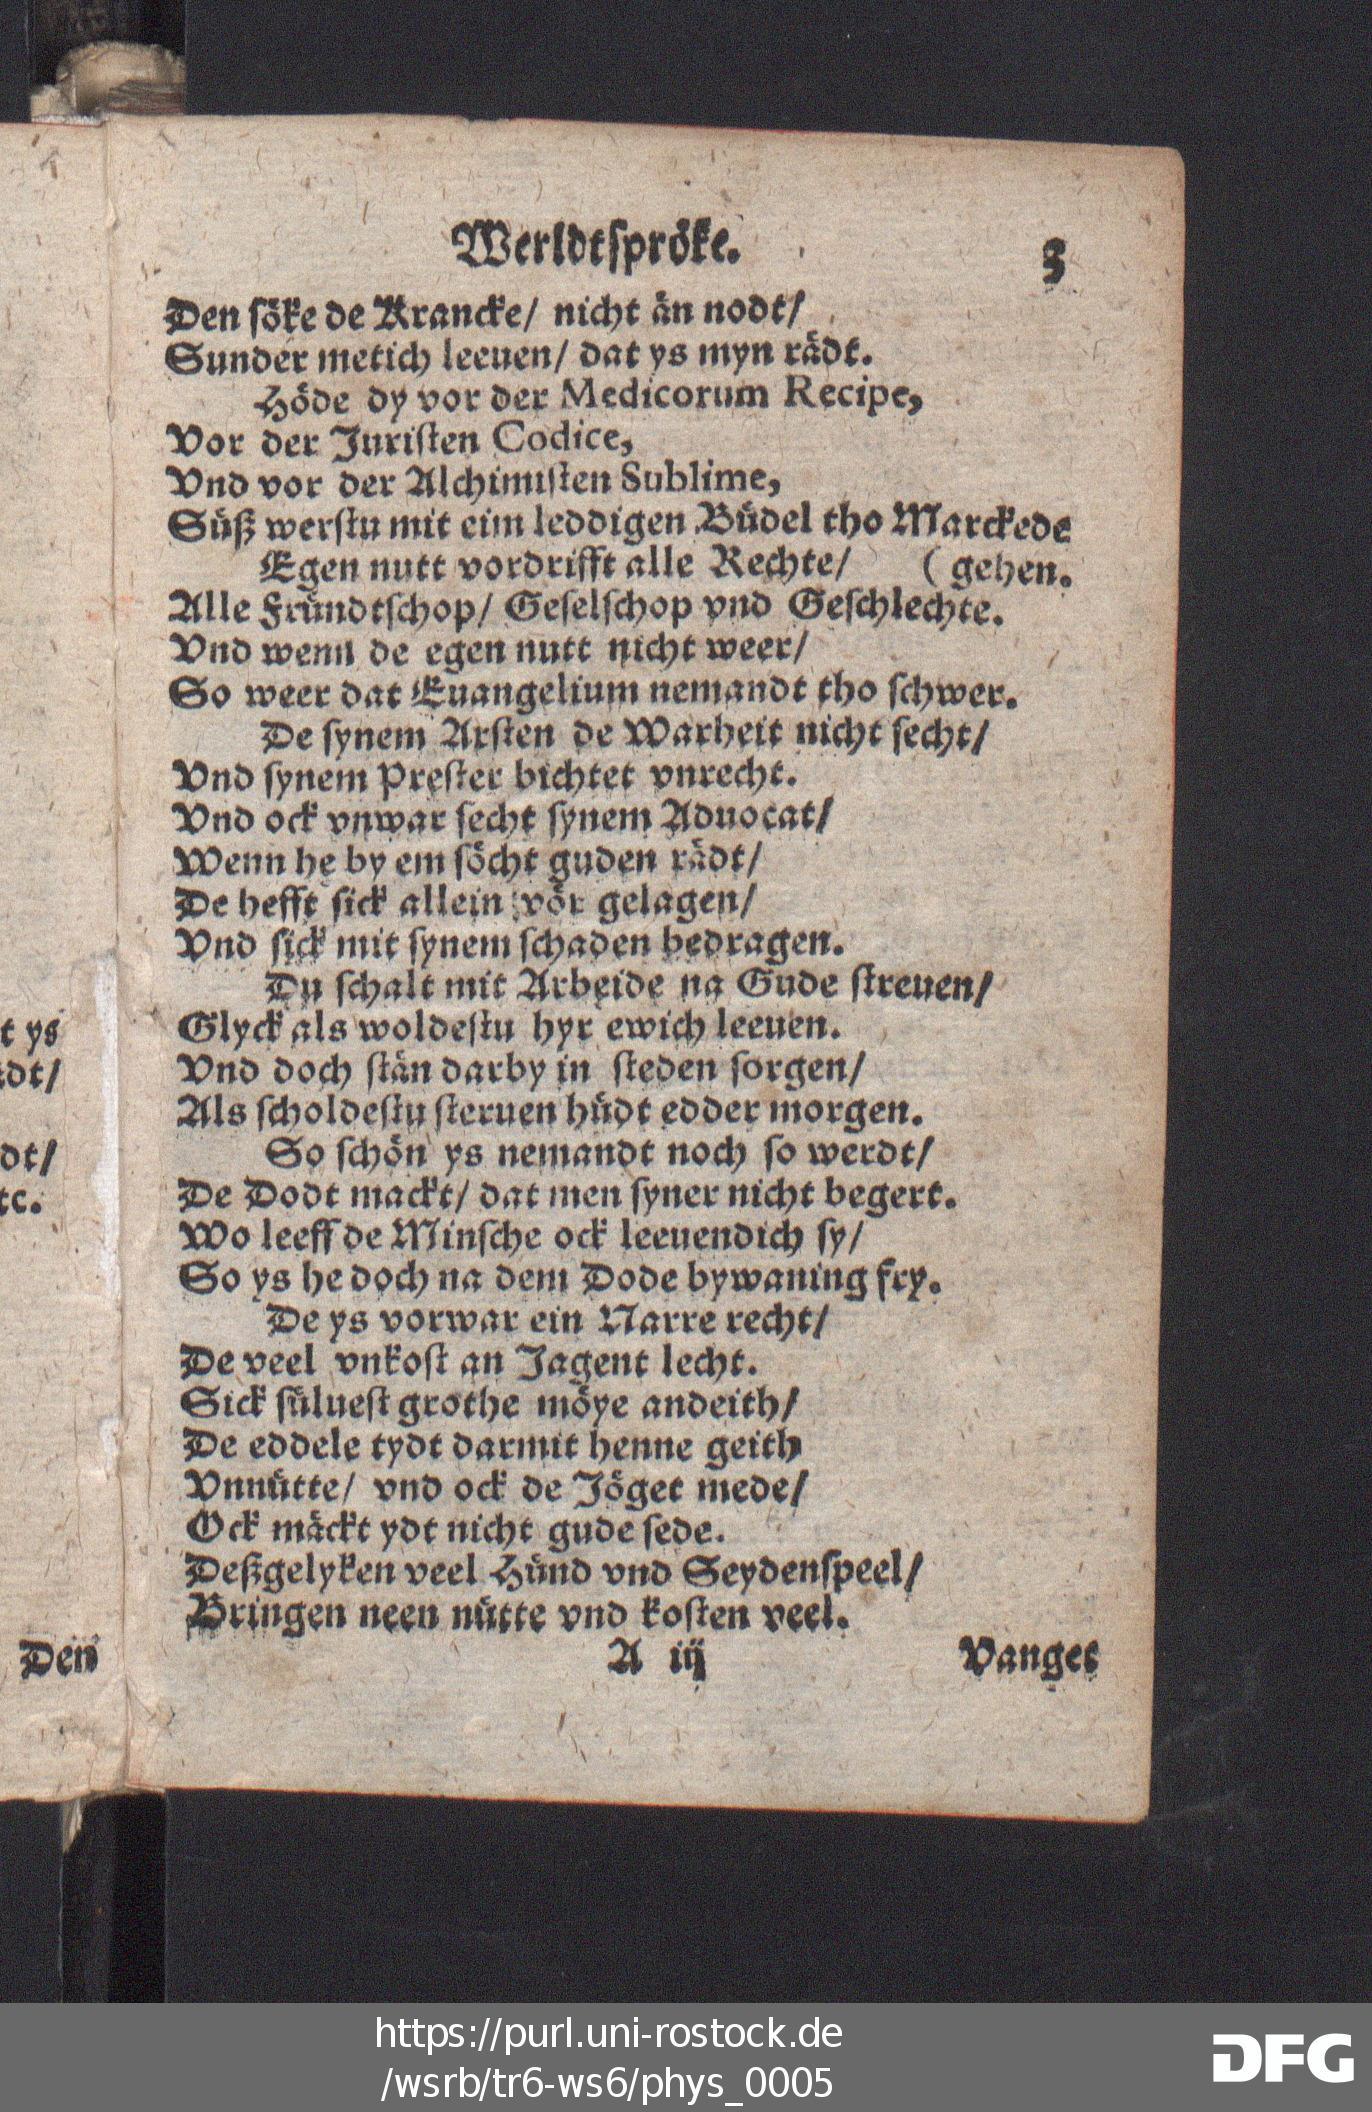 Werldtspröke.
3
Den söke de Krancke/ nicht än nodt/
Sunder metich leeuen/ dat ys myn rädt.
Höde dy vor der Medicorum Recipe,
Vor der Juristen Codice,
Vnd vor der Alchimisten Sublime,
Süß werstu mit eim leddigen Büdel tho Marckede
Egen nutt vordrifft alle Rechte/ ( gehen.
Alle Fründtschop/ Geselschop vnd Geschlechte.
Vnd wenn de egen nutt nicht weer/
So weer dat Euangelium nemandt tho schwer.
De synem Arsten de Warheit nicht secht/
Vnd synem Prester bichtet vnrecht.
Vnd ock vnwar secht synem Aduocat/
Wenn he by em söcht guden rädt/
De hefft sick allein vör gelagen/
Vnd sick mit synem schaden bedragen.
Du schalt mit Arbeide na Gude streuen/
Glyck als woldestu hyr ewich leeuen.
Vnd doch stän darby in steden sorgen/
Als scholdestu steruen hüdt edder morgen.
So schön ys nemandt noch so werdt/
De Dodt mackt/ dat men syner nicht begert.
Wo leeff de Minsche ock leeuendich sy/
So ys he doch na dem Dode bywaning fry.
De ys vorwar ein Narre recht/
De veel vnkost an Jagent lecht.
Sick süluest grothe möye andeith/
De eddele tydt darmit henne geith
Vnnütte/ vnd ock de Jöget mede/
Ock mäckt ydt nicht gude sede.
Deßgelyken veel Hünd vnd Seydenspeel/
Bringen neen nütte vnd kosten veel.
A iij
Vanges
t ys
dt/
dt/
tc.
Den
https://purl.uni-rostock.de
/wsrb/tr6-ws6/phys_0005
DFG